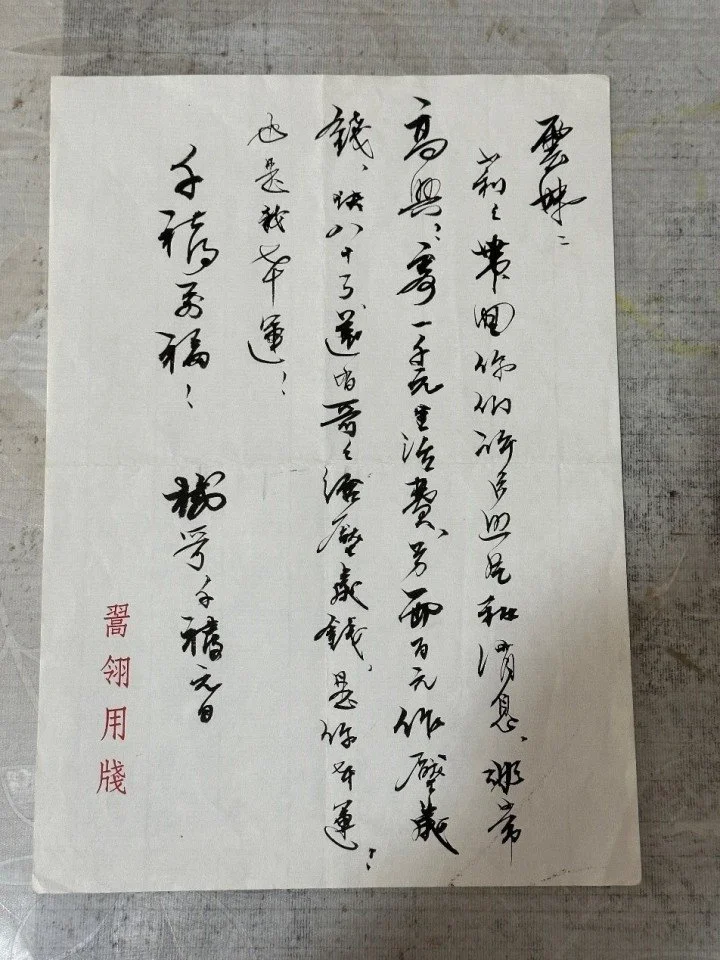 雲妹：
莉莉带回你们许多照片和消息、非常
高興！寄一千元生活费、另两百元作壓歲
錢、快八十了、還有哥哥給壓歲錢、是你幸運！
也是我幸運！
千禧万福！
樹哥千禧元旦
翯翎用牋